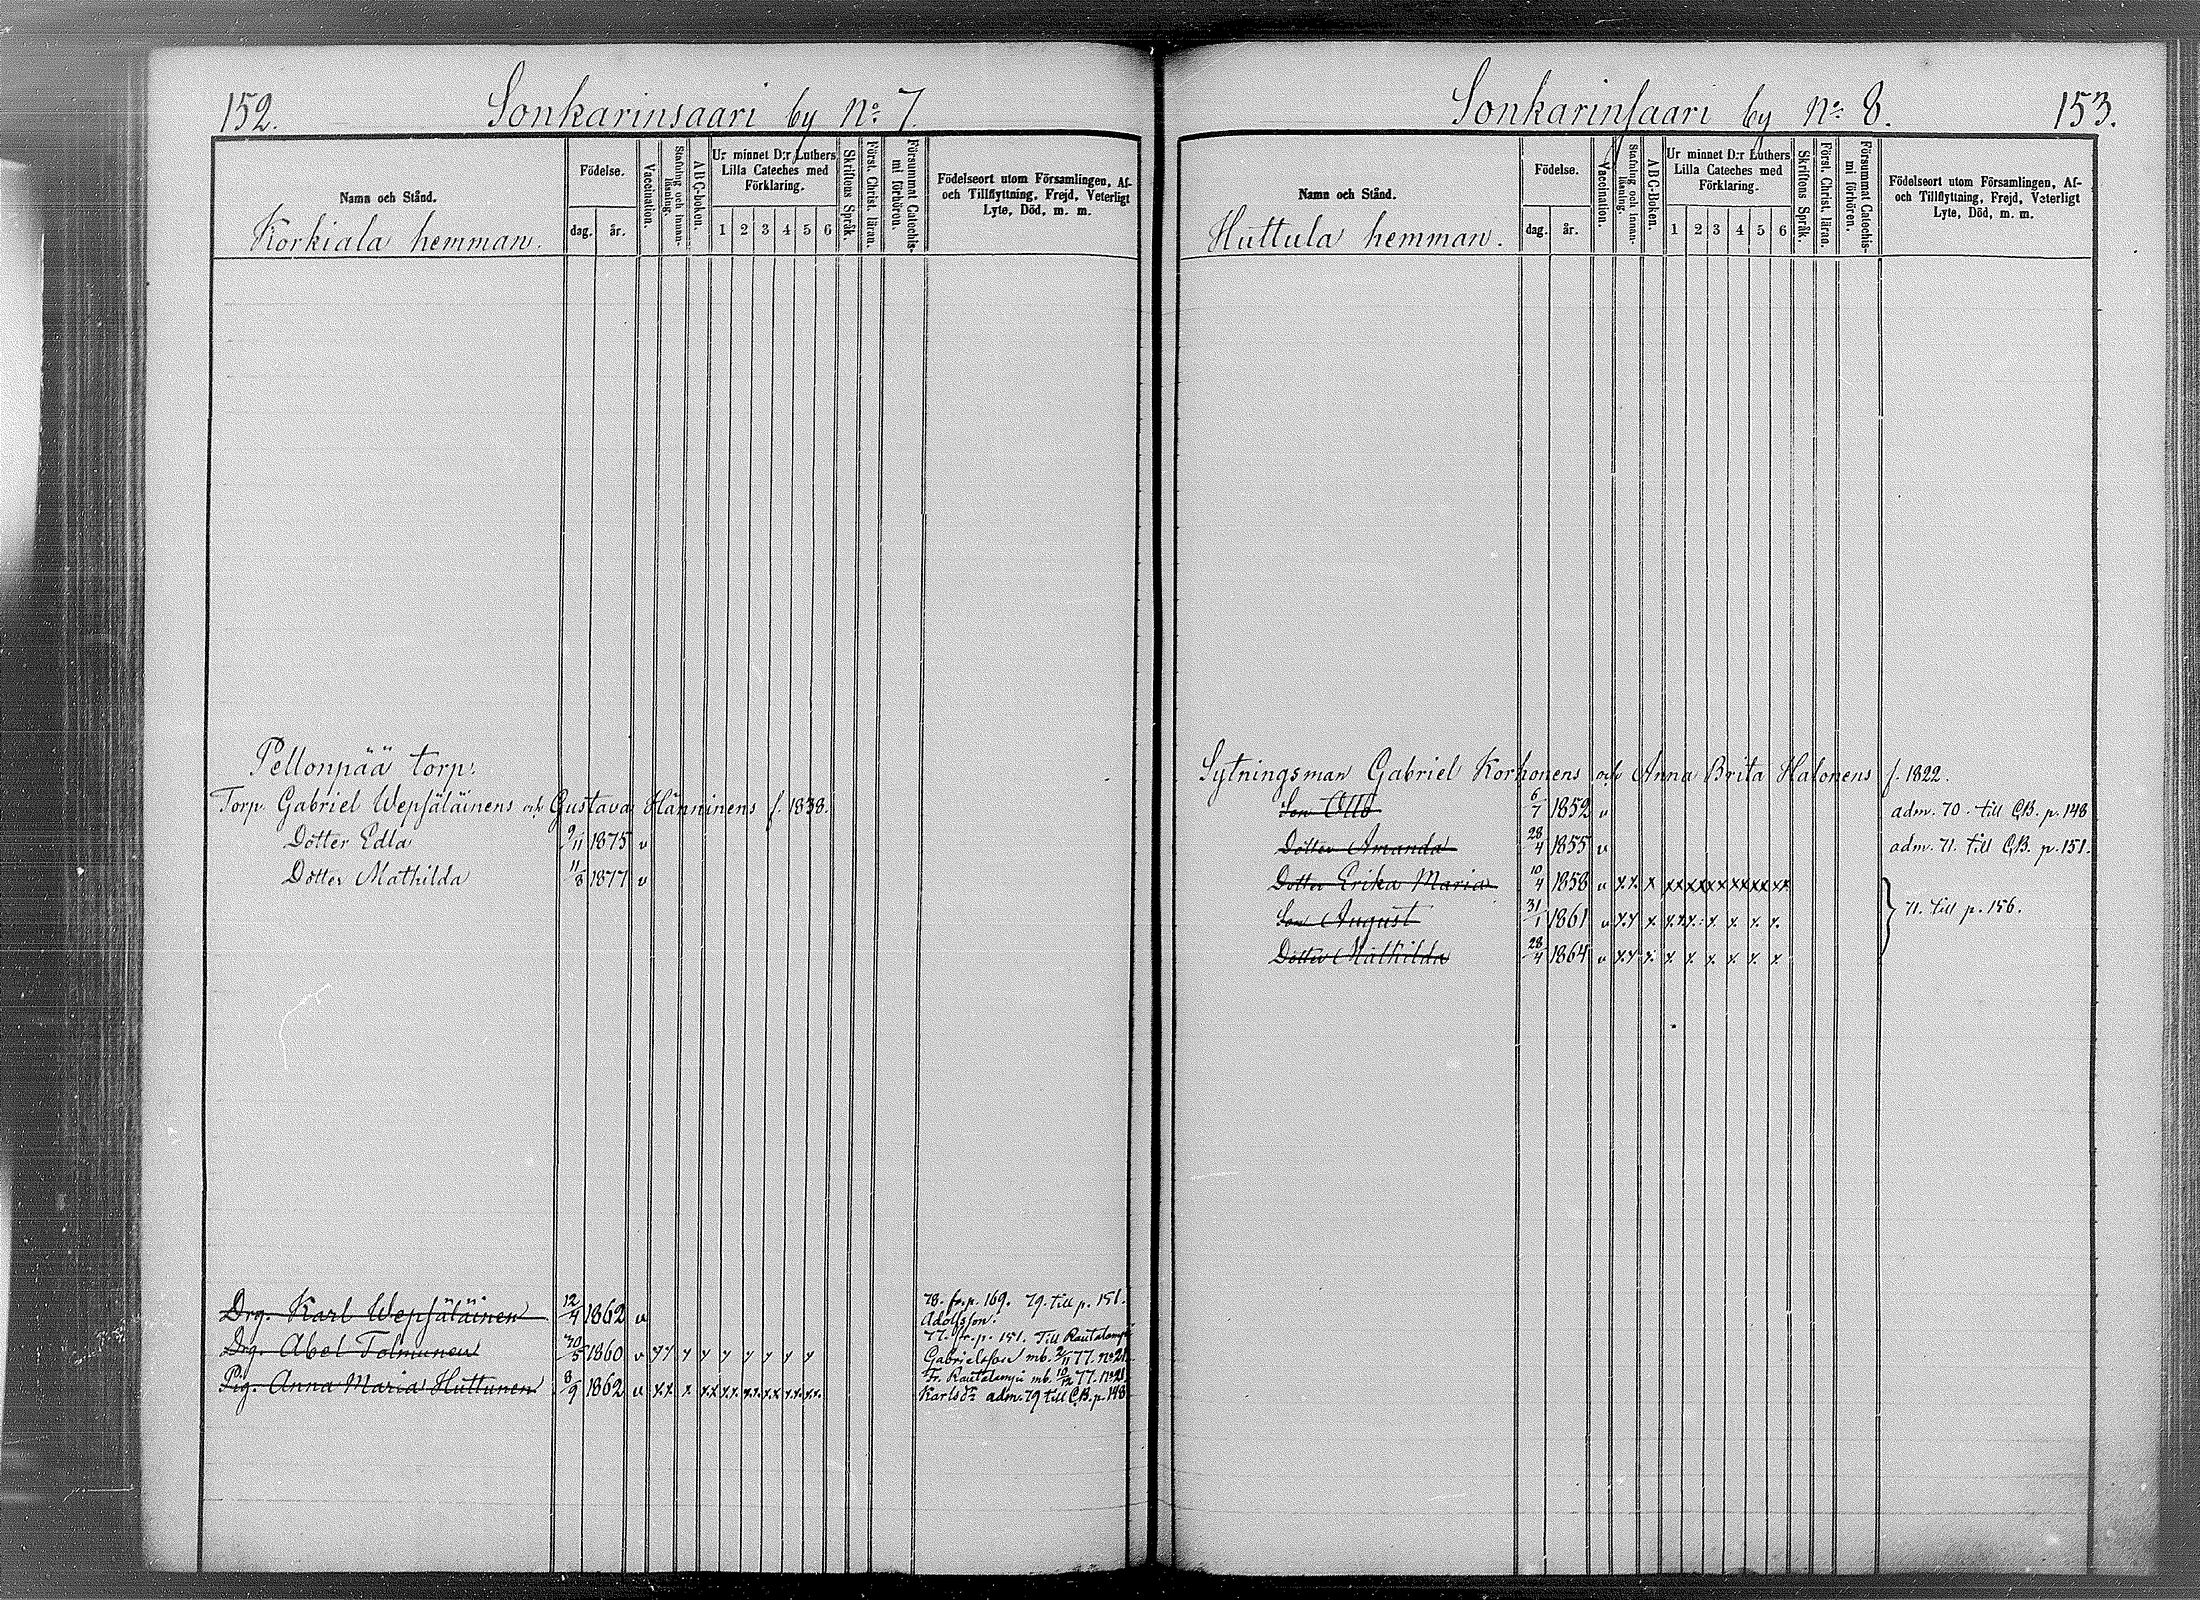 152.
Sonkarinsaari by No 7.
Namn och Stånd.
Korkiala hemman.
Födelse.
dag. år.
Vaccination.
Stafning och innan-läsning.
ABC-boken.
Ur minnet D:r Luthers Lilla Cateches med Förklaring.
1 2 3 4 5 6
Skriftens Språk.
Först. Christ. läran.
Försummat Catechis-mi förhören.
Födelseort utom Församlingen, Af- och Tillflyttning, Frejd, Veterligt Lyte, Död, m. m.
Pellonpää torp.
Torp. Gabriel Wepsäläinens och Gustava Hänninens f. 1838.
Dotter Edla 9/11 1875 v
Dotter Mathilda 11/8 1877 v
Drg. Karl Wepsäläinen 12/4 1862 v 78. fr. p. 169. 79. till p. 151.
Adolfsson.
Drg. Abel Tolmunen 30/5 1860 v 77. fr. p. 151. Till Rautalampi
Gabrielsson mb. 2/11 77. No 21.
Pig. Anna Maria Huttunen 8/9 1862 v Fr. Rautalampi mb. 10/12 77. No 21.
Karlsdr adm. 79 till C.B. p. 148
Sonkarinsaari by No 8.
153.
Namn och Stånd.
Huttula hemman.
Födelse.
dag. år.
Vaccination.
Stafning och innan-läsning.
ABC-Boken.
Ur minnet D:r Luthers Lilla Cateches med Förklaring.
1 2 3 4 5 6
Skriftens Språk.
Först. Christ. läran.
Försummat Catechis-mi förhören.
Födelseort utom Församlingen, Af- och Tillflyttning, Frejd, Veterligt Lyte, Död, m. m.
Sytningsman Gabriel Korhonens och Anna Brita Halonens f. 1822.
Son Otto 6/7 1852 v adm. 70. till C.B. p. 148
Dotter Amanda 28/4 1855 v adm. 71. till C.B. p. 151.
Dotter Erika Maria 10/4 1858 v x x x xx xx xx xx xx xx
Son August 31/1 1861 v x x x x x x x x x x 71. till p. 156.
Dotter Mathilda 28/4 1864 v x x x x x x x x x